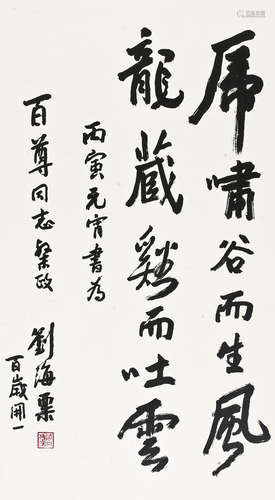 虎嘯谷而生風
龍藏谿而吐雲
丙寅元宵書為
百尊同志粲政
劉海粟
百歲開一